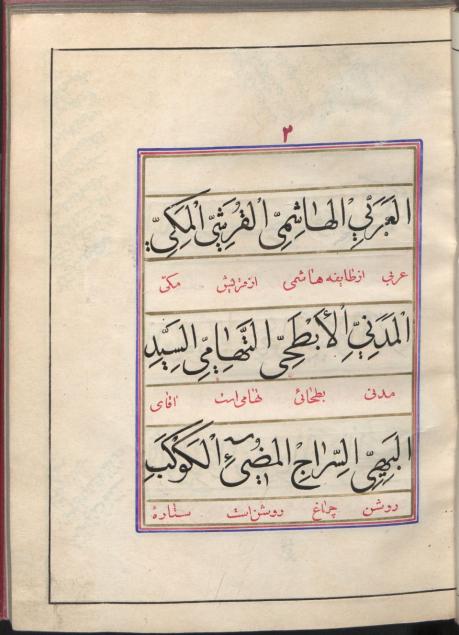 ٢
العَرَبِيِّ الهٰاشِمِيِّ القُرَشِيِّ المَكِّيِّ
عربی ازطایفه هاشمی ازقریش مکی
المَدَنِيِّ الأَبْطَحِيِّ التَّهٰامِيِّ السَّيِّدِ
مدنی بطحائی تهامی است اقای
البَهِيِّ السِّرٰاجِ المُضِيئِ الكَوْكَبِ
روشن چراغ روشن است ستارۀ